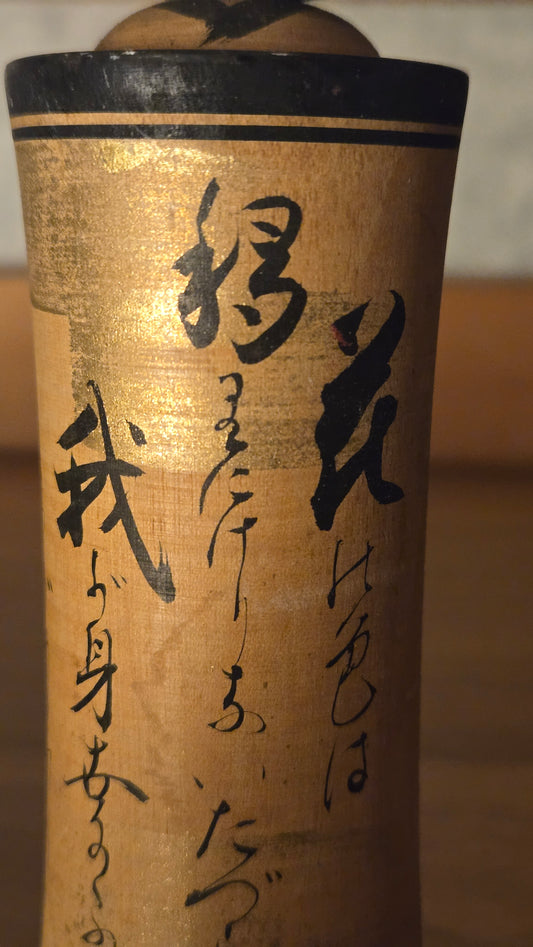 花の色は
移りにけりな いたづ
我が身世